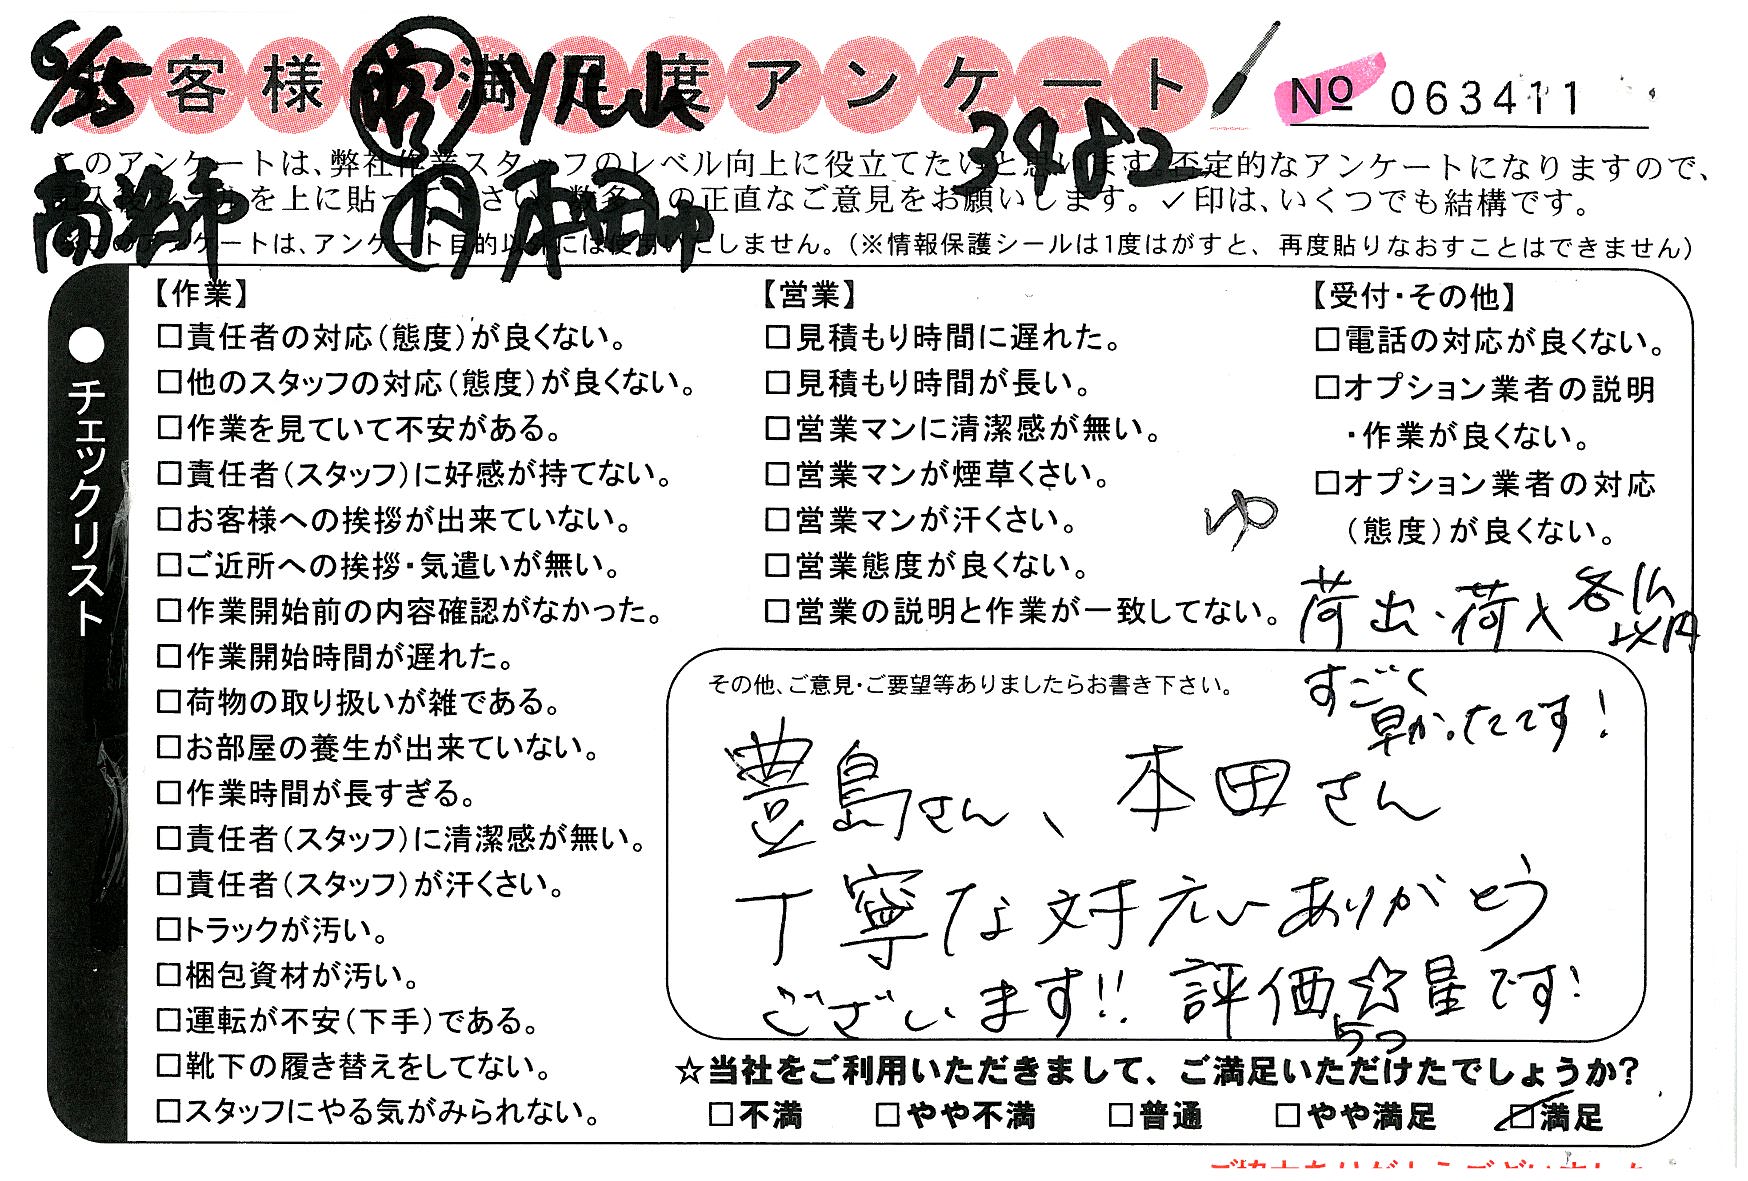 6/25
お客様の満足度アンケート
No 063411
3982
このアンケートは、弊社作業スタッフのレベル向上に役立てたいと思います。否定的なアンケートになりますので、
を上に貼って下さい。数多くの正直なご意見をお願いします。✓印は、いくつでも結構です。
このアンケートは、アンケート目的以外には使用いたしません。(※情報保護シールは1度はがすと、再度貼りなおすことはできません)
●チェックリスト
【作業】
□責任者の対応(態度)が良くない。
□他のスタッフの対応(態度)が良くない。
□作業を見ていて不安がある。
□責任者(スタッフ)に好感が持てない。
□お客様への挨拶が出来ていない。
□ご近所への挨拶・気遣いが無い。
□作業開始前の内容確認がなかった。
□作業開始時間が遅れた。
□荷物の取り扱いが雑である。
□お部屋の養生が出来ていない。
□作業時間が長すぎる。
□責任者(スタッフ)に清潔感が無い。
□責任者(スタッフ)が汗くさい。
□トラックが汚い。
□梱包資材が汚い。
□運転が不安(下手)である。
□靴下の履き替えをしてない。
□スタッフにやる気がみられない。
【営業】
□見積もり時間に遅れた。
□見積もり時間が長い。
□営業マンに清潔感が無い。
□営業マンが煙草くさい。
□営業マンが汗くさい。
□営業態度が良くない。
□営業の説明と作業が一致してない。
【受付・その他】
□電話の対応が良くない。
□オプション業者の説明
・作業が良くない。
□オプション業者の対応
(態度)が良くない。
ゆ
荷出・荷入各1h
以内
すごく
早かったです!
その他、ご意見・ご要望等ありましたらお書き下さい。
豊島さん、本田さん
丁寧な対応ありがとう
ございます!! 評価☆星です!
5つ
☆当社をご利用いただきまして、ご満足いただけたでしょうか?
□不満 □やや不満 □普通 □やや満足 ☑満足